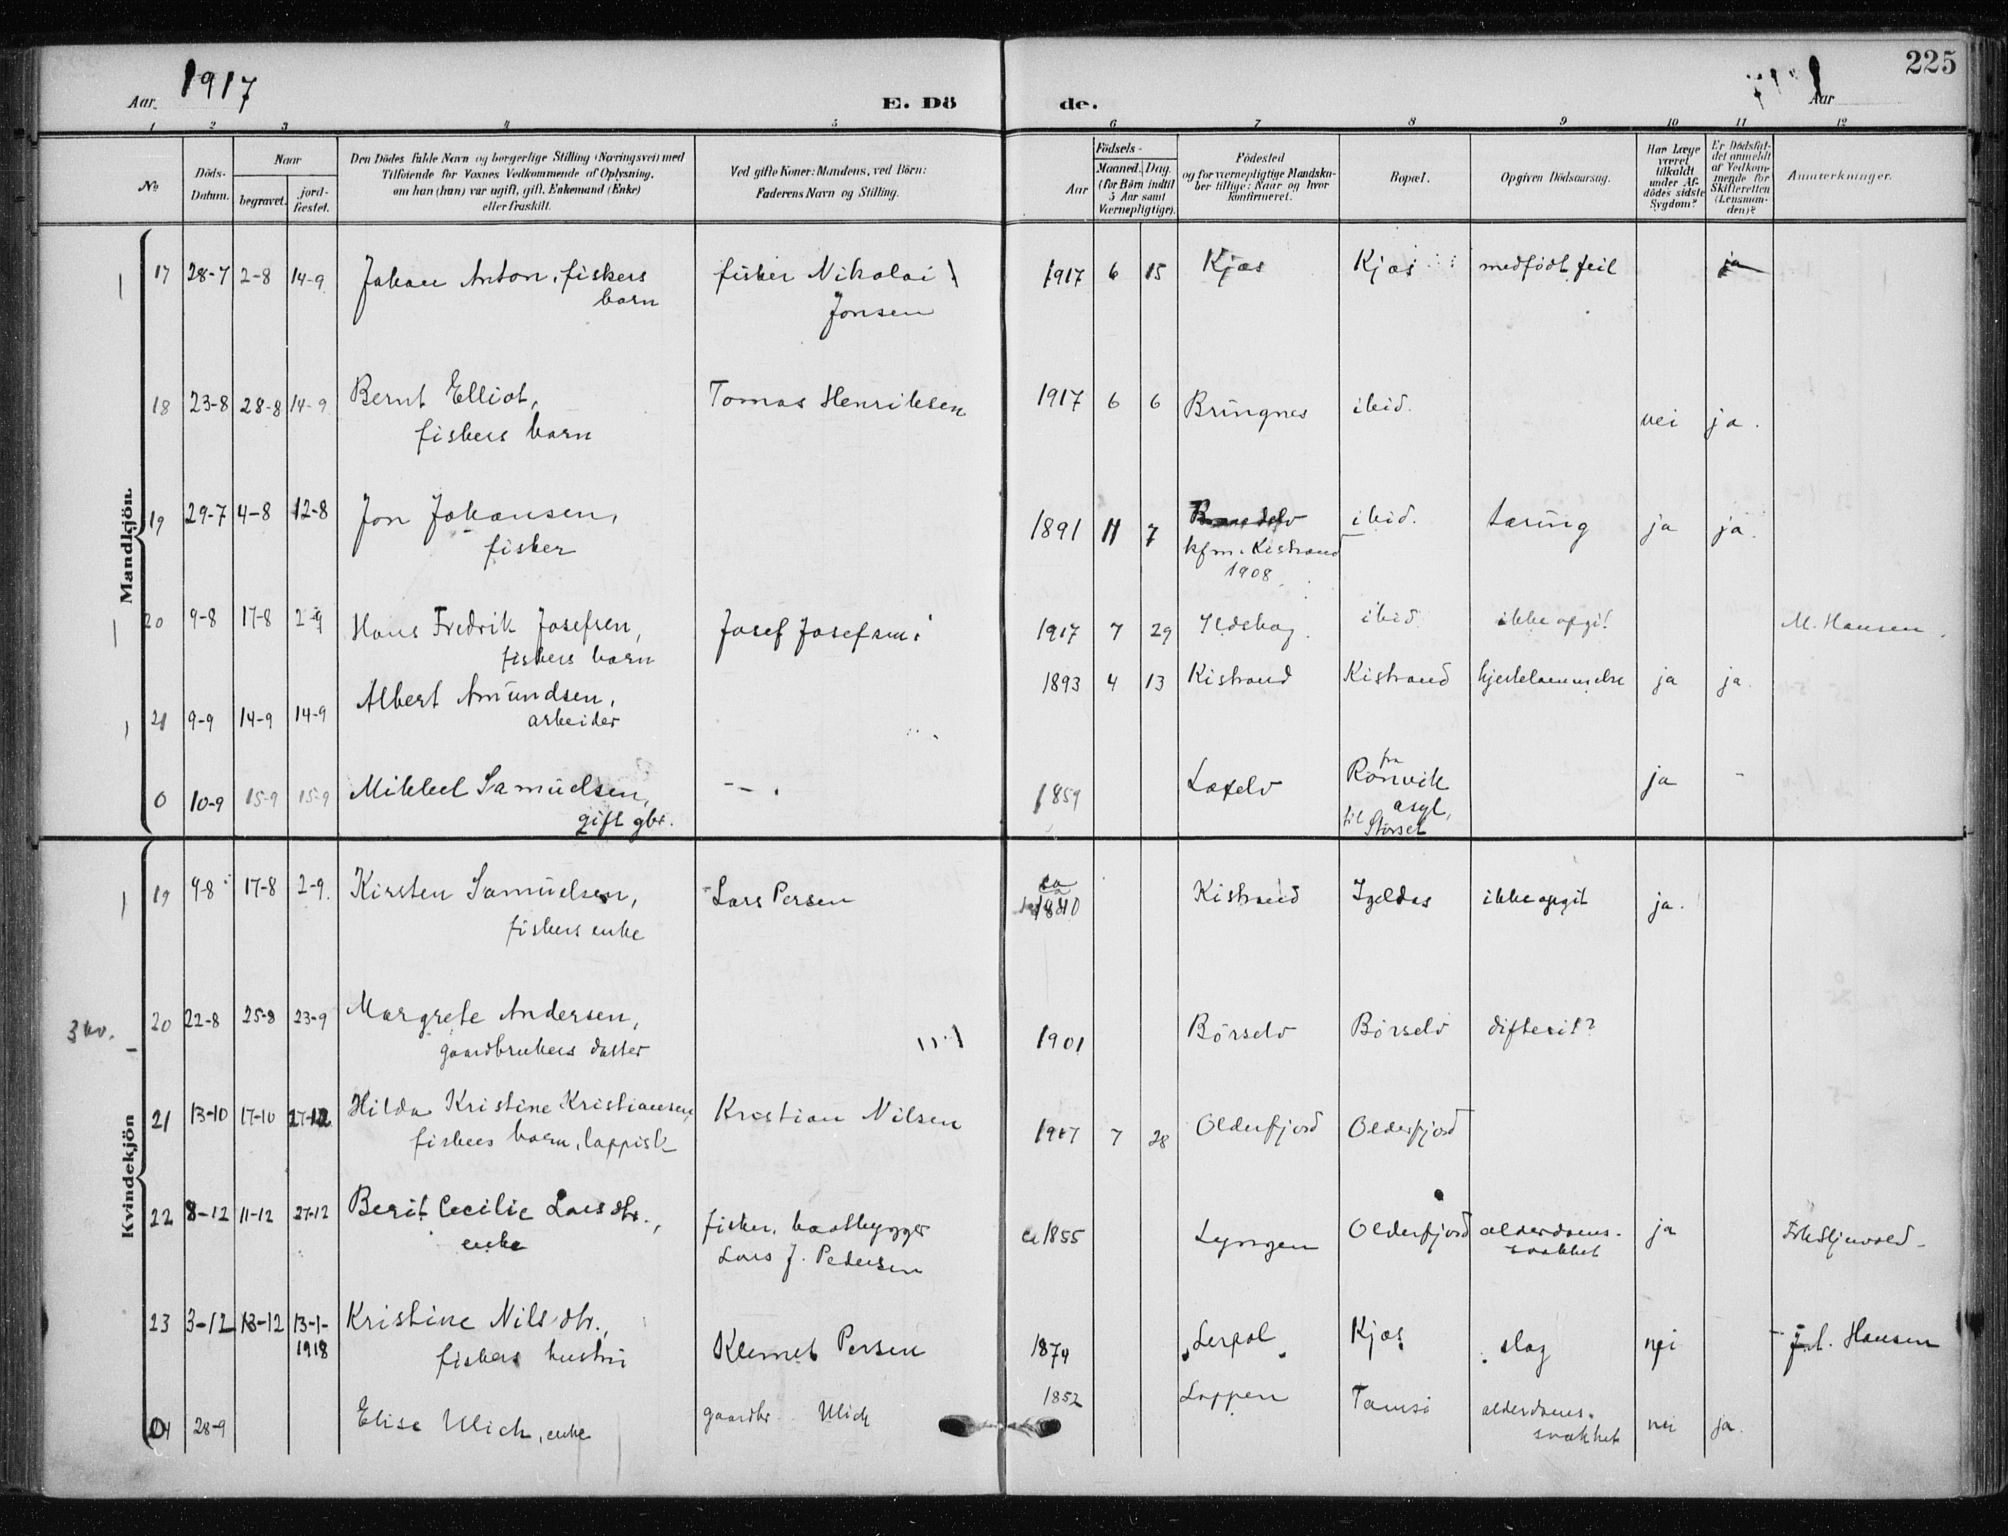 225
1917
Aar.
E. Dö
de.
Aar
1 2 3 4 5 6 7 8 9 10 11 12
№
Döds-
Datum.
Naar
begravet.
jord-
fæstet.
Den Dödes fulde Navn og borgerlige Stilling (Næringsvei) med
Tilföiende for Voxnes Vedkommende af Oplysning.
om han (hun) var ugift, gift, Enkemand (Enke)
eller fraskilt.
Ved gifte Koner: Mandens, ved Börn:
Faderens Navn og Stilling.
Födsels-
Aar
Maaned. Dag.
(for Börn indtil
5 Aar samt
Værnepligtige).
Födested
og for værnepligtige Mandska-
ber tillige: Naar og hvor
konfirmeret.
Bopæl.
Opgiven Dödsaarsag.
Har Læge
været
tilkaldt
under Af-
dödes sidste
Sygdom?
Er Dödsfal-
det anmeldt
af Vedkom-
mende for
Skifteretten
(Lensman-
den)?
Anmærkninger.
Mandkjön.
17 28-7 2-8 14-9 Johan Anton, fiskers fisker Nikolai 1917 6 15 Kjæs Kjæs medfödt feil ja
barn Jonsen
18 23-8 28-8 14-9 Bernt Elliot, Tomas Henriksen 1917 6 6 Bringnes ibid. nei ja.
fiskers barn
19 29-7 4-8 12-8 Jon Johansen, 1891 11 7 ibid. tæring ja ja.
fisker kfm. Kistrand
1908
20 9-8 17-8 2-9 Hans Fredrik Josefsen, Josef Josefsen 1917 7 29 Ildskog. ibid. ikke opgit M. Hansen.
fiskers barn
21 9-9 14-9 14-9 Albert Amundsen, 1893 4 13 Kistrand Kistrand hjertelammelse ja ja.
arbeider
0 10-9 15-9 15-9 Mikkel Samuelsen, - - . 1859 Laxelv fra Rönvik ja -
gift gbr. asyl,
til Störset
Kvindekjön
19 9-8 17-8 2-9. Kirsten Samuelsen, Lars Persen ca 1840 Kistrand Igeldas ikke opgit ja.
fiskers enke
3 kv.
20 22-8 25-8 23-9 Margrete Andersen, 1901 Börselv Börselv difterit?
gaardbrukers datter
21 13-10 17-10 27-12 Hilda Kristine Kristiansen, Kristian Nilsen 1917 7 28 Olderfjord Olderfjord
fiskers barn, lappisk
22 8-12 11-12 27-12 Berit Cecilie Larsdtr., fisker, baatbygger ca 1855 Lyngen Olderfjord alderdoms- ja
enke Lars J. Pedersen svakhet
23 3-12 13-12 13-1- Kristine Nilsdtr., Klemet Persen 1874 Lerpol Kjæs slag nei Hansen
1918
fiskers hustru
24 28-9 Elise Ulich, enke gaardbr. Ulich 1852 Loppen Tamsö alderdoms- nei ja.
svakhet